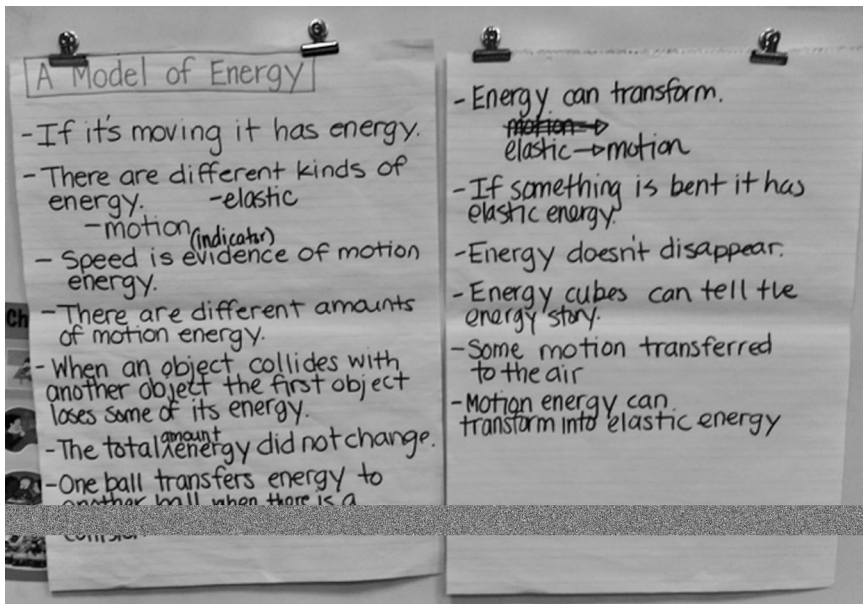 A Model of Energy
- If it's moving it has energy.
- There are different kinds of
energy. - elastic
- motion
(indicator)
- Speed is evidence of motion
energy.
- There are different amounts
of motion energy.
- When an object collides with
another object the first object
loses some of its energy.
amount
- The total ^ energy did not change.
- One ball transfers energy to
another ball when there is a
- Energy can transform.
motion →
elastic → motion
- If something is bent it has
elastic energy.
- Energy doesn't disappear.
- Energy cubes can tell the
energy story.
- Some motion transferred
to the air
- Motion energy can
transform into elastic energy
Ch